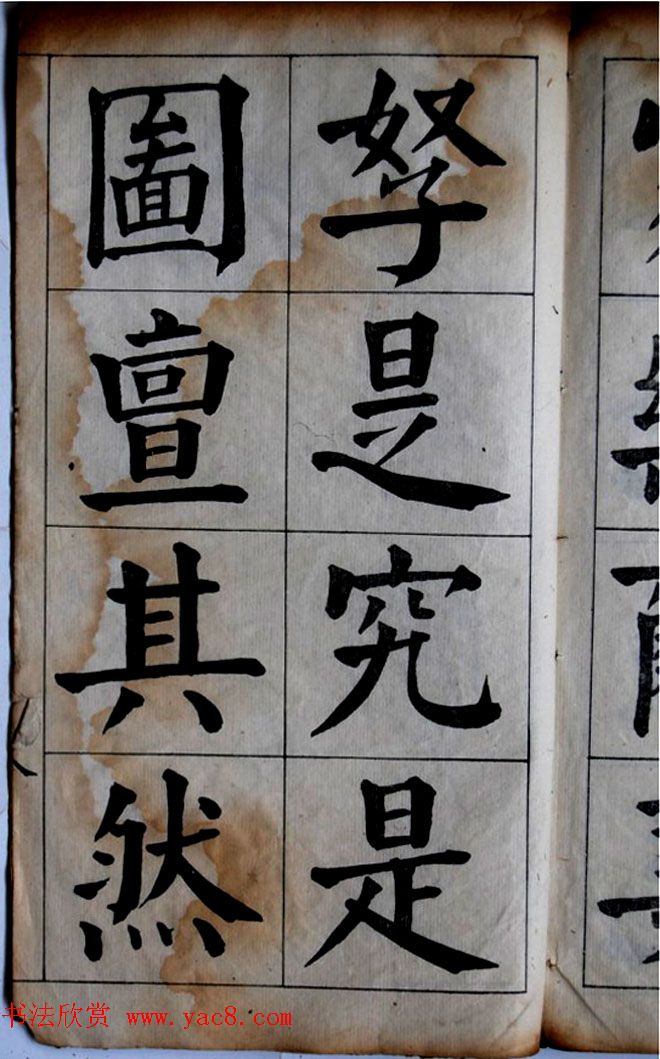 孥是究是
圖亶其然
书法欣赏 www.yac8.com